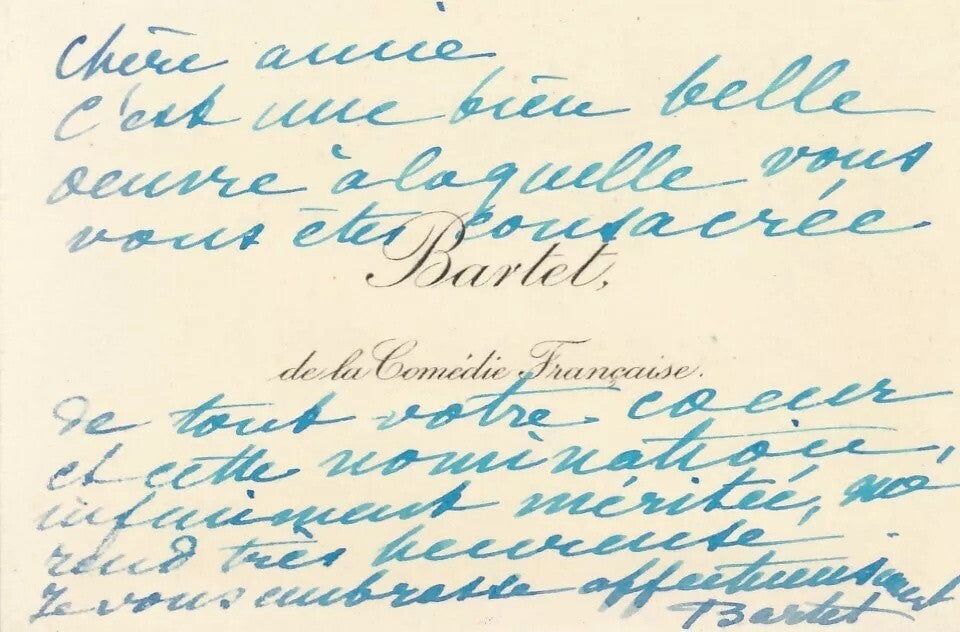 Chère amie
C'est une bien belle
oeuvre à laquelle vous
vous êtes consacrée
Bartet,
de la Comédie Française.
de tout votre coeur
et cette nomination,
infiniment méritée, me
rend très heureuse
Je vous embrasse affectueusement
Bartet